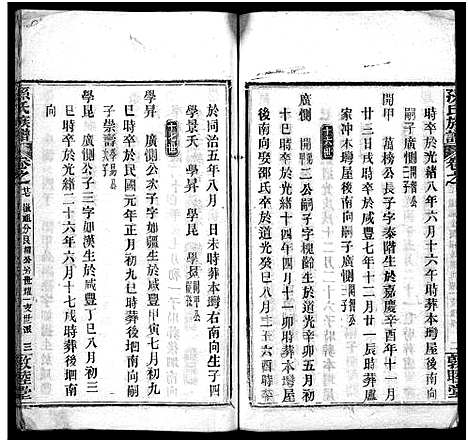 時卒於光緒八年六月十六年時葬本塆屋後向南
嗣子廣惻
開甲 萬榜公長子字泰階生於嘉慶辛酉年十一月
廿三日戌時卒於咸豐七年十二月廿一辰時葬盧
家沖本塆屋後向
十六世
廣惻 開甲公嗣子字槐齡生於道光辛卯五月初
二巳時卒於光緒十四年四月十一丙時葬本塆後
向南娶邵氏生於道光癸巳八月二十五六酉時卒
於同治五年八月 日未時葬本塆右南向生子四
學景天 學昇 學昆
十七世
學昇 廣惻公次子字如疆生於咸豐甲寅七月初九
巳時卒於民國元年正月初九巳時葬後垇南向嗣
子崇壽
學昆 廣惻公子三字如漢生於咸豐丁巳八月初三
巳時卒於光緒二十六年六月十七戌時葬後垇南
孫氏族譜 卷之 三 敦睦堂